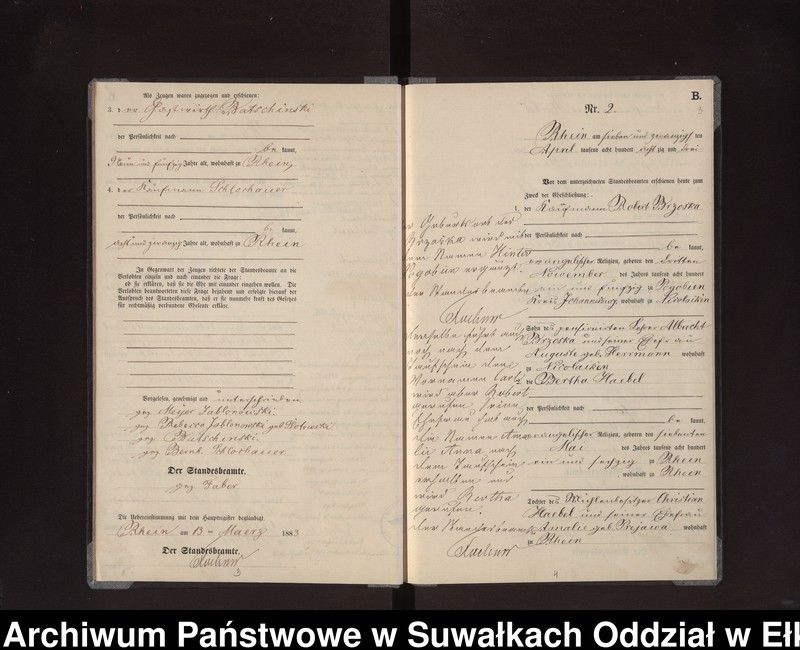 Als Zeugen waren zugezogen und erschienen:
3. der Gastwirth Batschinski
der Persönlichkeit nach
be kannt,
Neun und fünfzig Jahre alt, wohnhaft zu Rhein,
4. der Kaufmann Schlochauer
der Persönlichkeit nach
be kannt,
acht und zwanzig Jahre alt, wohnhaft zu Rhein
In Gegenwart der Zeugen richtete der Standesbeamte an die
Verlobten einzeln und nach einander die Frage:
ob sie erklären, daß sie die Ehe mit einander eingehen wollen. Die
Verlobten beantworteten diese Frage bejahend und erfolgte hierauf der
Ausspruch des Standesbeamten, daß er sie nunmehr kraft des Gesetzes
für rechtmäßig verbundene Eheleute erkläre.
Vorgelesen, genehmigt und unterschrieben
gez. Meyer Jablonowski
gez. Rebecca Jablonowski geb.
gez. Batschinski.
gez. Bernh. Schlochauer
Der Standesbeamte.
gez. Faber
Die Uebereinstimmung mit dem Hauptregister beglaubigt
Rhein am 13ten Maerz 1883
Der Standesbeamte.
3
B.
3
Nr. 2.
Rhein am sieben und zwanzigsten
April tausend acht hundert achtzig und drei
Vor dem unterzeichneten Standesbeamten erschienen heute zum
Zweck der Eheschließung:
1. der Kaufmann Robert Brzoska
der Persönlichkeit nach
be kannt,
evangelischer Religion, geboren den dritten
November des Jahres tausend acht hundert
ein und fünfzig zu Pogobien
Kreis Johannisburg, wohnhaft zu Nicolaiken
Sohn des pensionirten Lehrer Albrecht
Brzoska und seiner Ehefrau
Auguste geb. Herrmann wohnhaft
zu Nicolaiken
2. die Bertha Haebel
der Persönlichkeit nach
be kannt,
evangelischer Religion, geboren den siebenten
Mai des Jahres tausend acht hundert
ein und sechzig zu Rhein
, wohnhaft zu Rhein
Tochter des Mühlenbesitzer Christian
Haebel und seiner Ehefrau
Amalie geb. Projawa wohnhaft
zu Rhein
Geburtsort des
Brzoska wird mit
dem Namen Hinter
Pogobien ergänzt.
der Standesbeamte
derselbe führt auch
noch nach dem
Taufschein den
Vornamen Carl
wird aber Robert
gerufen. Seine
Ehefrau hat auch
die Namen
Anna nach
dem Taufschein
erhalten und
wird Bertha
gerufen.
der Standesbeamte
4
Archiwum Państwowe w Suwałkach Oddział w Ełk